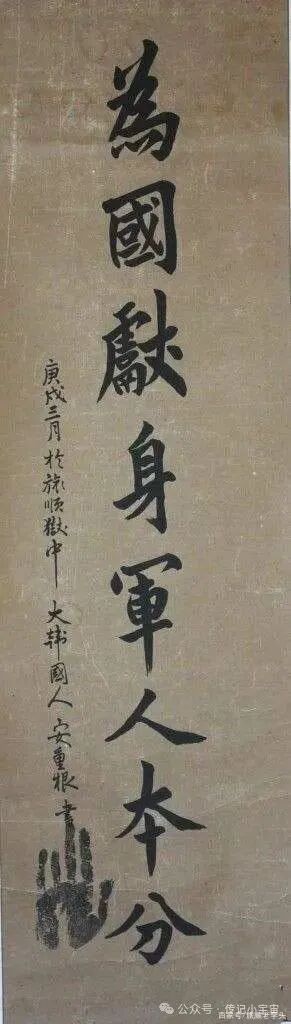 為國獻身軍人本分
庚戌三月 於旅順獄中 大韓國人 安重根 書
公众号·传记小宇宙